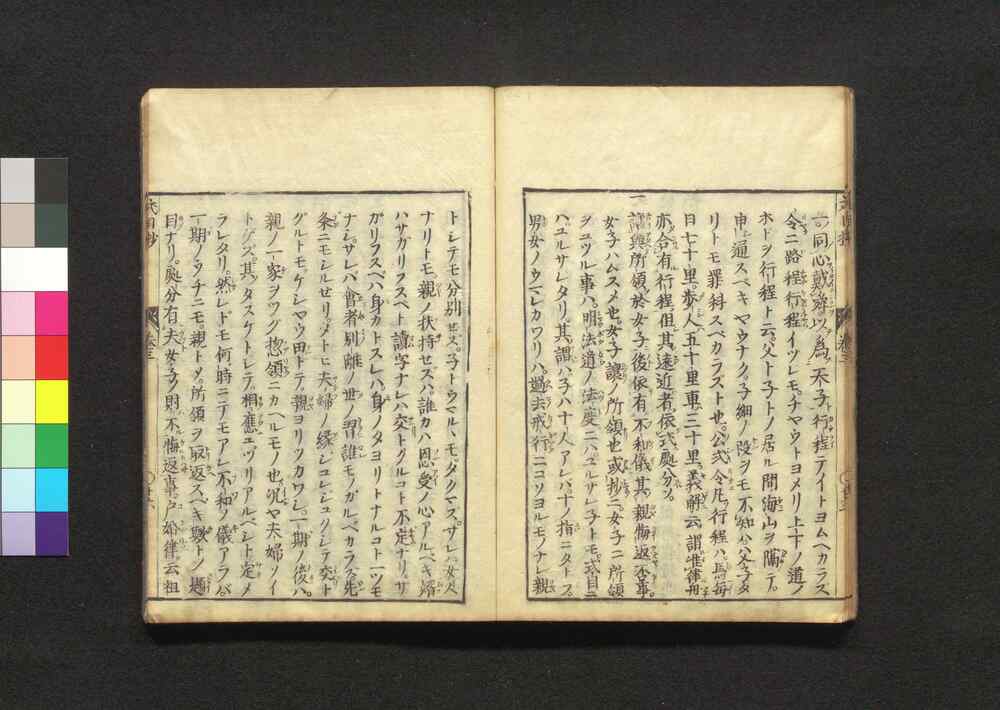 一同心戴難以爲天子行程テイトヨムヘカラス
令ニ路程行程イツレモ。チヤウトヨメリ上下ノ道ノ
ホドヲ行程ト云。父ト子トノ居ル間海山ヲ隔テ。
申通スベキヤウナク。子細ノ段ヲモ不知ハ父子タ
リトモ罪科スベカラズト也。公式令凡行程ハ馬毎
日七十里。歩人五十里車三十里。義解云謂
亦合有行程但其遠近者依式處分ソ。
一讓與所領於女子後依有不和儀其親悔返否事。
女子ハムスメ也。女子讓所領也或抄女子ニ所領
ヲユヅル事ハ明法道ノ法度ニハユルサレ子トモ。式目ニ
ハユルサレタリ。其謂ハ子ハ十人アレバ十ノ指ニタトフ。
男女ノウマレカワリハ。過去戒行ニコソヨルモノナレ親
トシテモ分別セス。子トウマルヽモ。タクマズ。サレハ女人
ナリトモ。親ノ扶持セズハ。誰カハ恩愛ノ心アルベキ婿
ハサカリフスベト讀字ナレハ交トクルコト不定ナリサ
ガリフスベハ身カトスレハ身ノタヨリトナルコト一ツモ
ナシ。サレバ會者別離ノ世ノ習誰モノガルベカラズ先
条ニモシルセリ。タトヒ夫婦ノ縁
グルトモ。ケシヤウ田トテ。親ヨリツカワシ。一期ノ後ハ。
親ノ一家ヲツグ惣領ニカヘルモノ也況ヤ夫婦ソイ
トグズ。其タスケトシテ。相應ユヅリアルベシト定メ
ラレタリ。然レドモ何時ニテモアレ不和ノ儀アラバ
一期ノウチニモ。親トメ。所領ヲ取返スベキ歟トノ題
目ナリ。處分有夫女子ノ則不悔返事戸婚律云祖